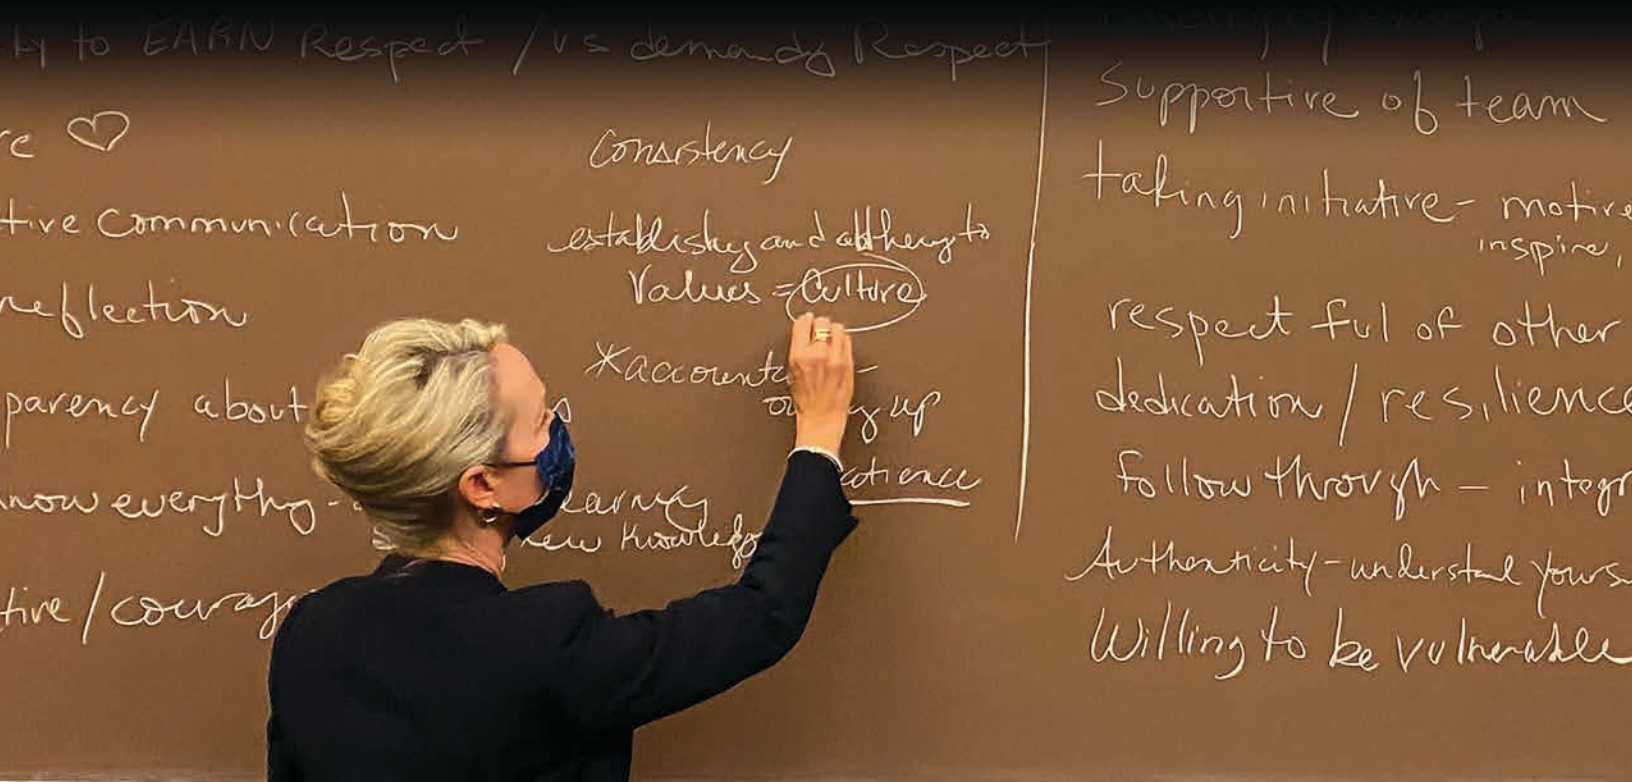 to EARN Respect / vs demandg Respect
♡
tive communication
reflection
parency about
now everythg -
learng
new Knowledg
tive / courag
Consistency
establishg and adhering to
Values = Culture
*accounta -
up
atience
Supportive of team
taking initiative - motive
inspire,
respect ful of other
dedication / resilience
follow through - integr
Authenticity - understand yours
Willing to be vulnerable